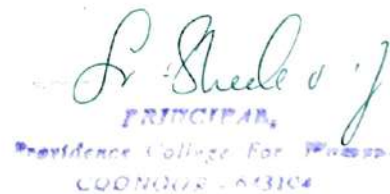 Sr Sheela V.J
PRINCIPAL,
Providence College For Women
COONOOR - 643104